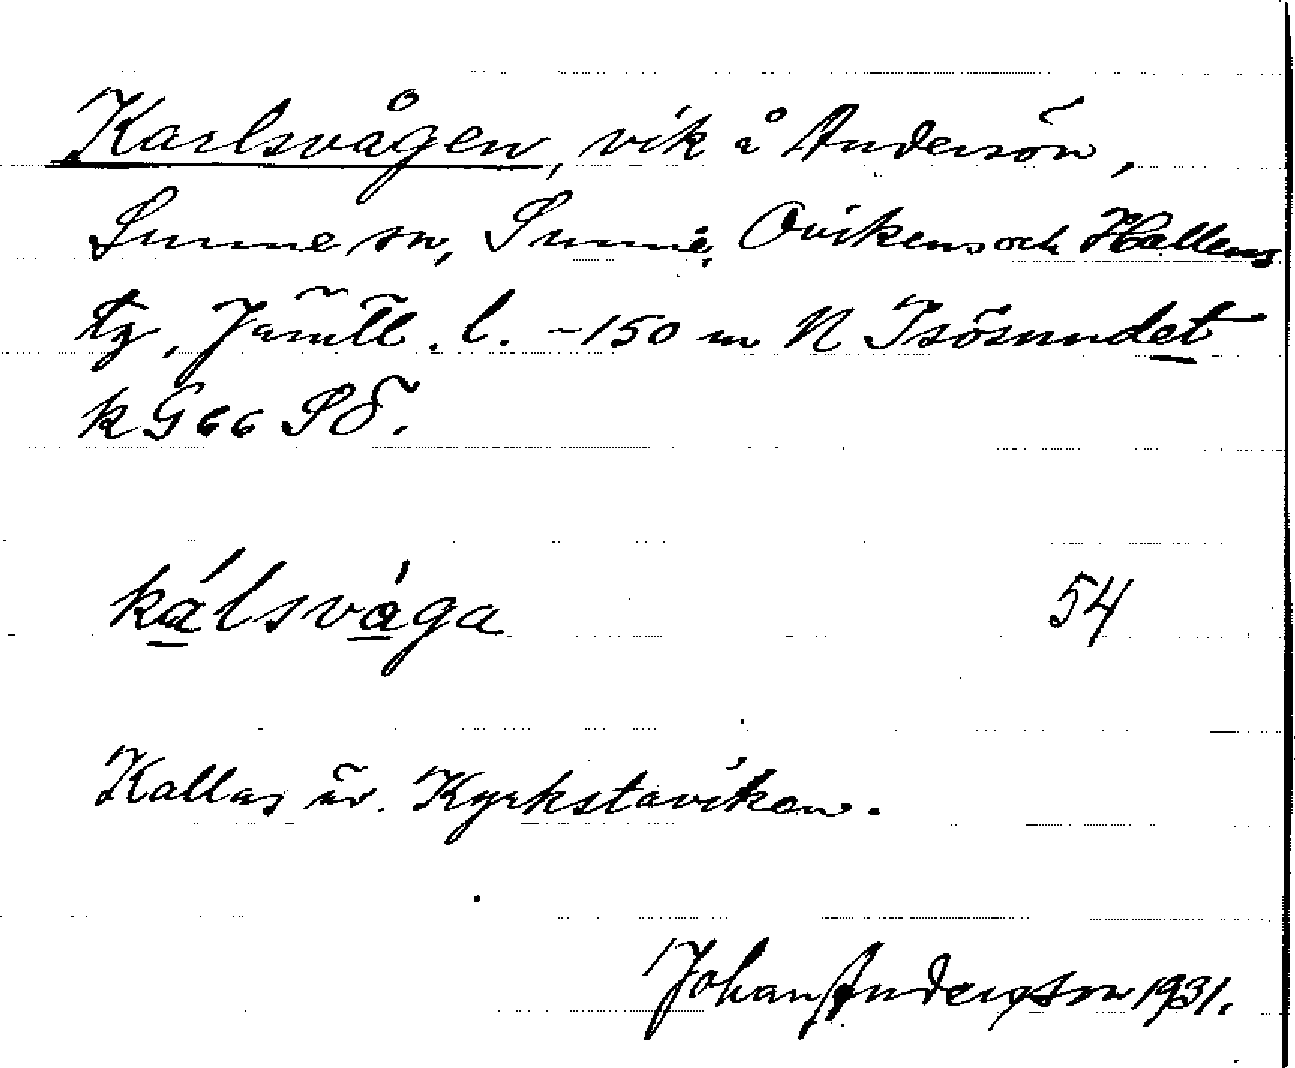 Karlsvågen, vik å Andersön,
Sunne sn, Sunne, Ovikens och Hallens
tg, Jämtl. l. ~150 m N Isösundet
k G 66 SÖ.
kálsvàga 54
Kallas äv. Kyrkstaviken.
Johan Andersson 1931.